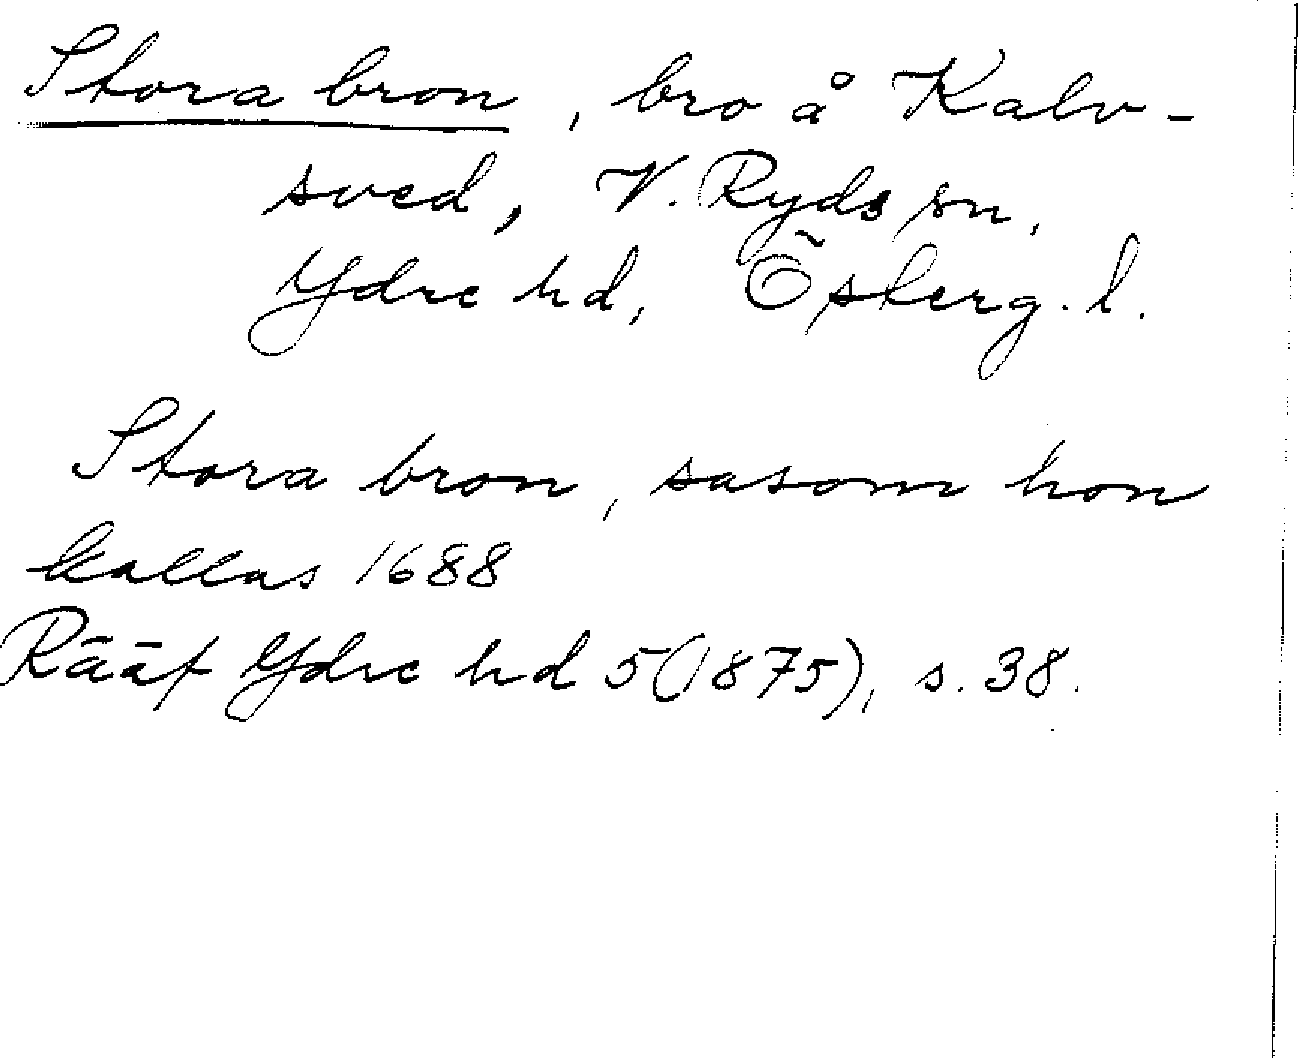 Stora bron, bro å Kalv-
sved, V. Ryds sn,
Ydre hd, Österg. l.
Stora bron, sasom hon
kallas 1688
Rääf Ydre hd 5(1875), s. 38.